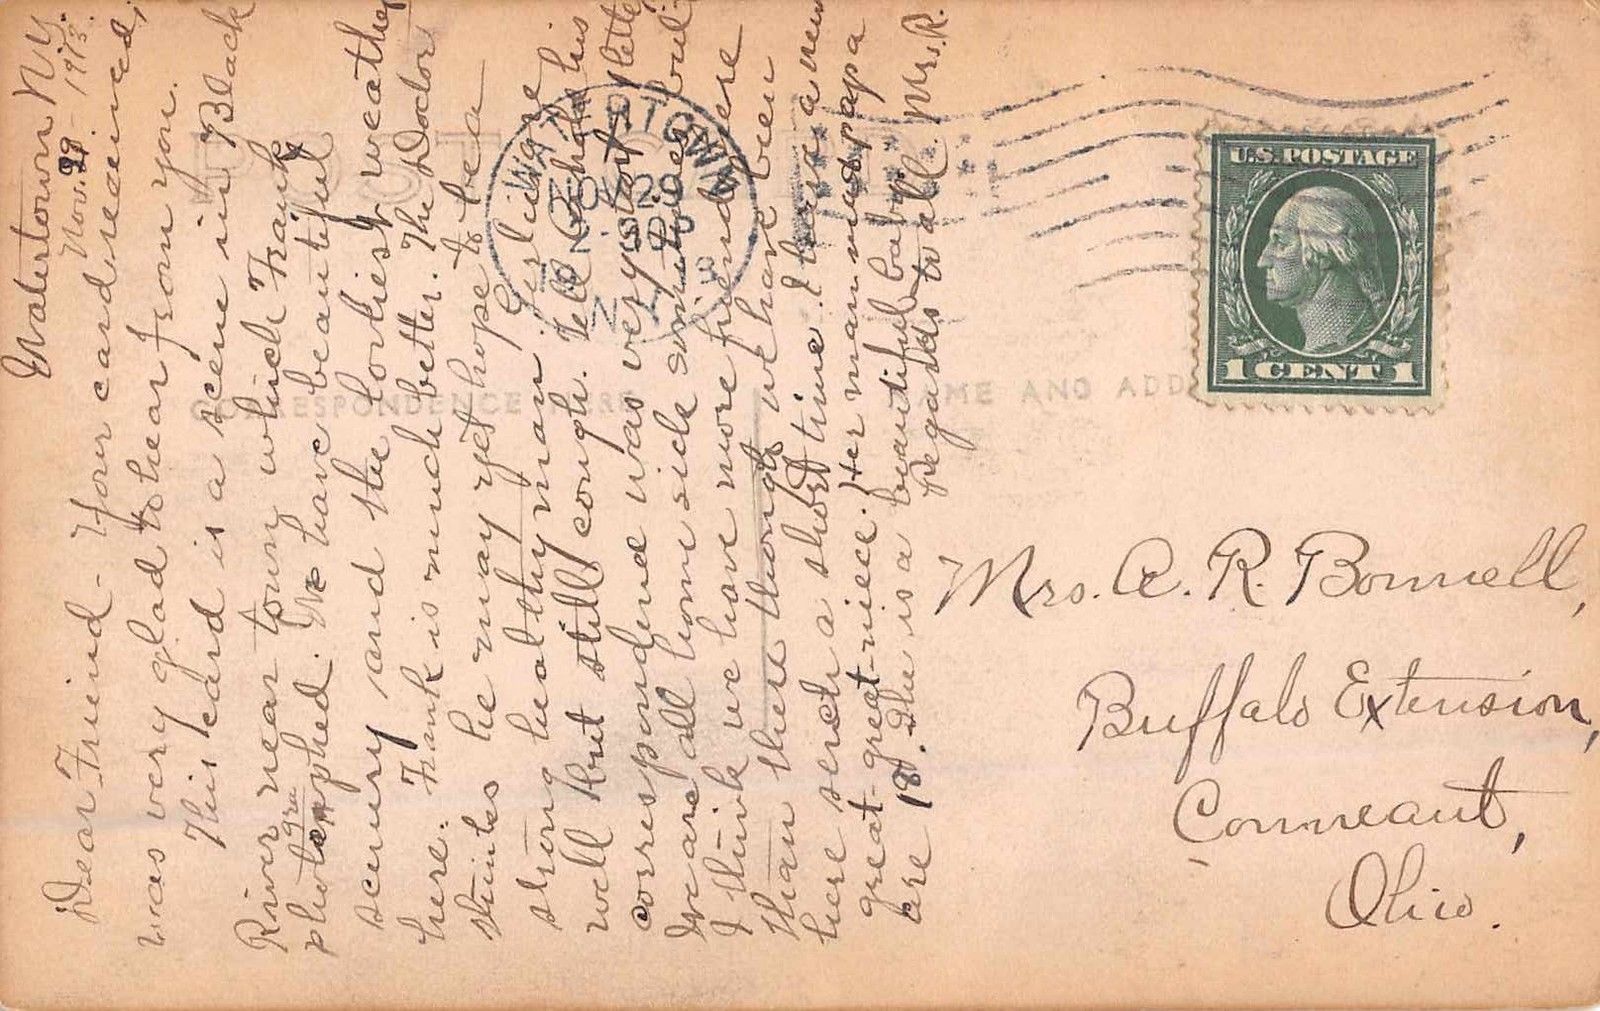 Watertown N.Y.
Nov. 29 - 1913.
Dear Friend - Your card received,
was very glad to hear from you.
This card is a scene in Black
River near town which Frank
photographed. We have beautiful
scenery and the lovliest weather
here. Frank is much better. The Doctor
thinks he may yet hope to be a
strong healthy man. Leslie is
well but still cough. Tell his
correspondence was very short
We are all home sick
I think we have more friends here
than there though we have been
here such a short time. I have a new
great-great-niece. Her mamma & papa
are 18. She is a beautiful baby
Regards to all. Mrs. R.
POST CARD
WATERTOWN
NOV 29
N.Y.
CORRESPONDENCE HERE
NAME AND ADD
U.S. POSTAGE
1 CENT 1
Mrs. A. R. Bonnell,
Buffalo Extension,
Conneaut,
Ohio.